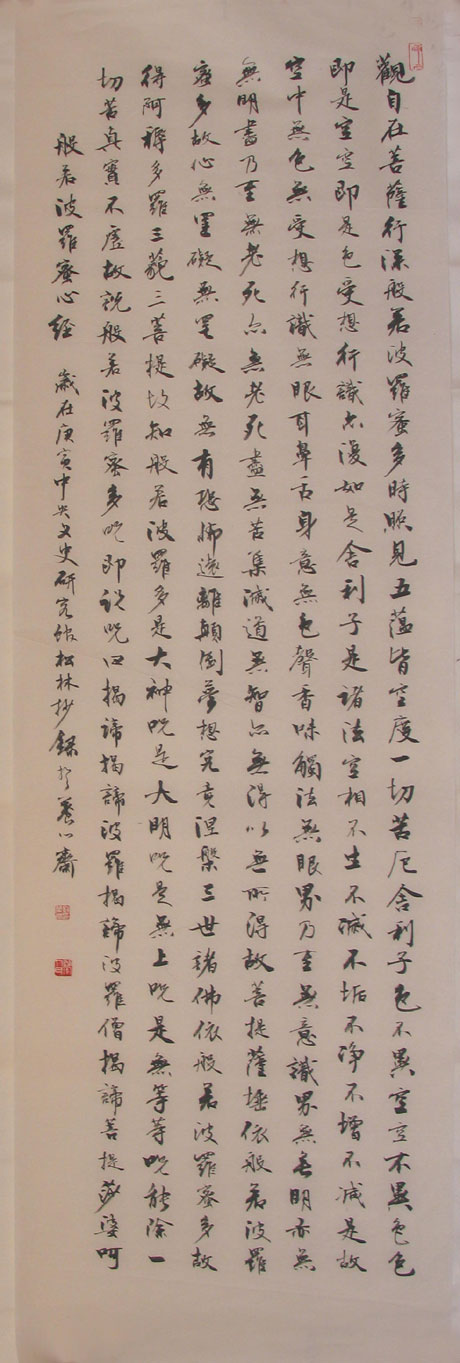 觀自在菩薩行深般若波羅蜜多時照見五蘊皆空度一切苦厄舍利子色不異空空不異色色
即是空空即是色受想行識亦復如是舍利子是諸法空相不生不滅不垢不净不增不减是故
空中無色無受想行識無眼耳鼻舌身意無色聲香味觸法無眼界乃至無意識界無無明亦無
無明盡乃至無老死亦無老死盡無苦集滅道無智亦無得以無所得故菩提薩埵依般若波羅
蜜多故心無罣礙無罣礙故無有恐怖遠離顛倒夢想究竟涅槃三世諸佛依般若波羅蜜多故
得阿耨多羅三藐三菩提故知般若波羅多是大神呪是大明呪是無上呪是無等等呪能除一
切苦真實不虛故説般若波羅蜜多呪即説呪曰揭諦揭諦波羅揭諦波羅僧揭諦菩提莎婆呵
般若波羅蜜心經 歲在庚寅中央文史研究館松林抄錄於養心齋